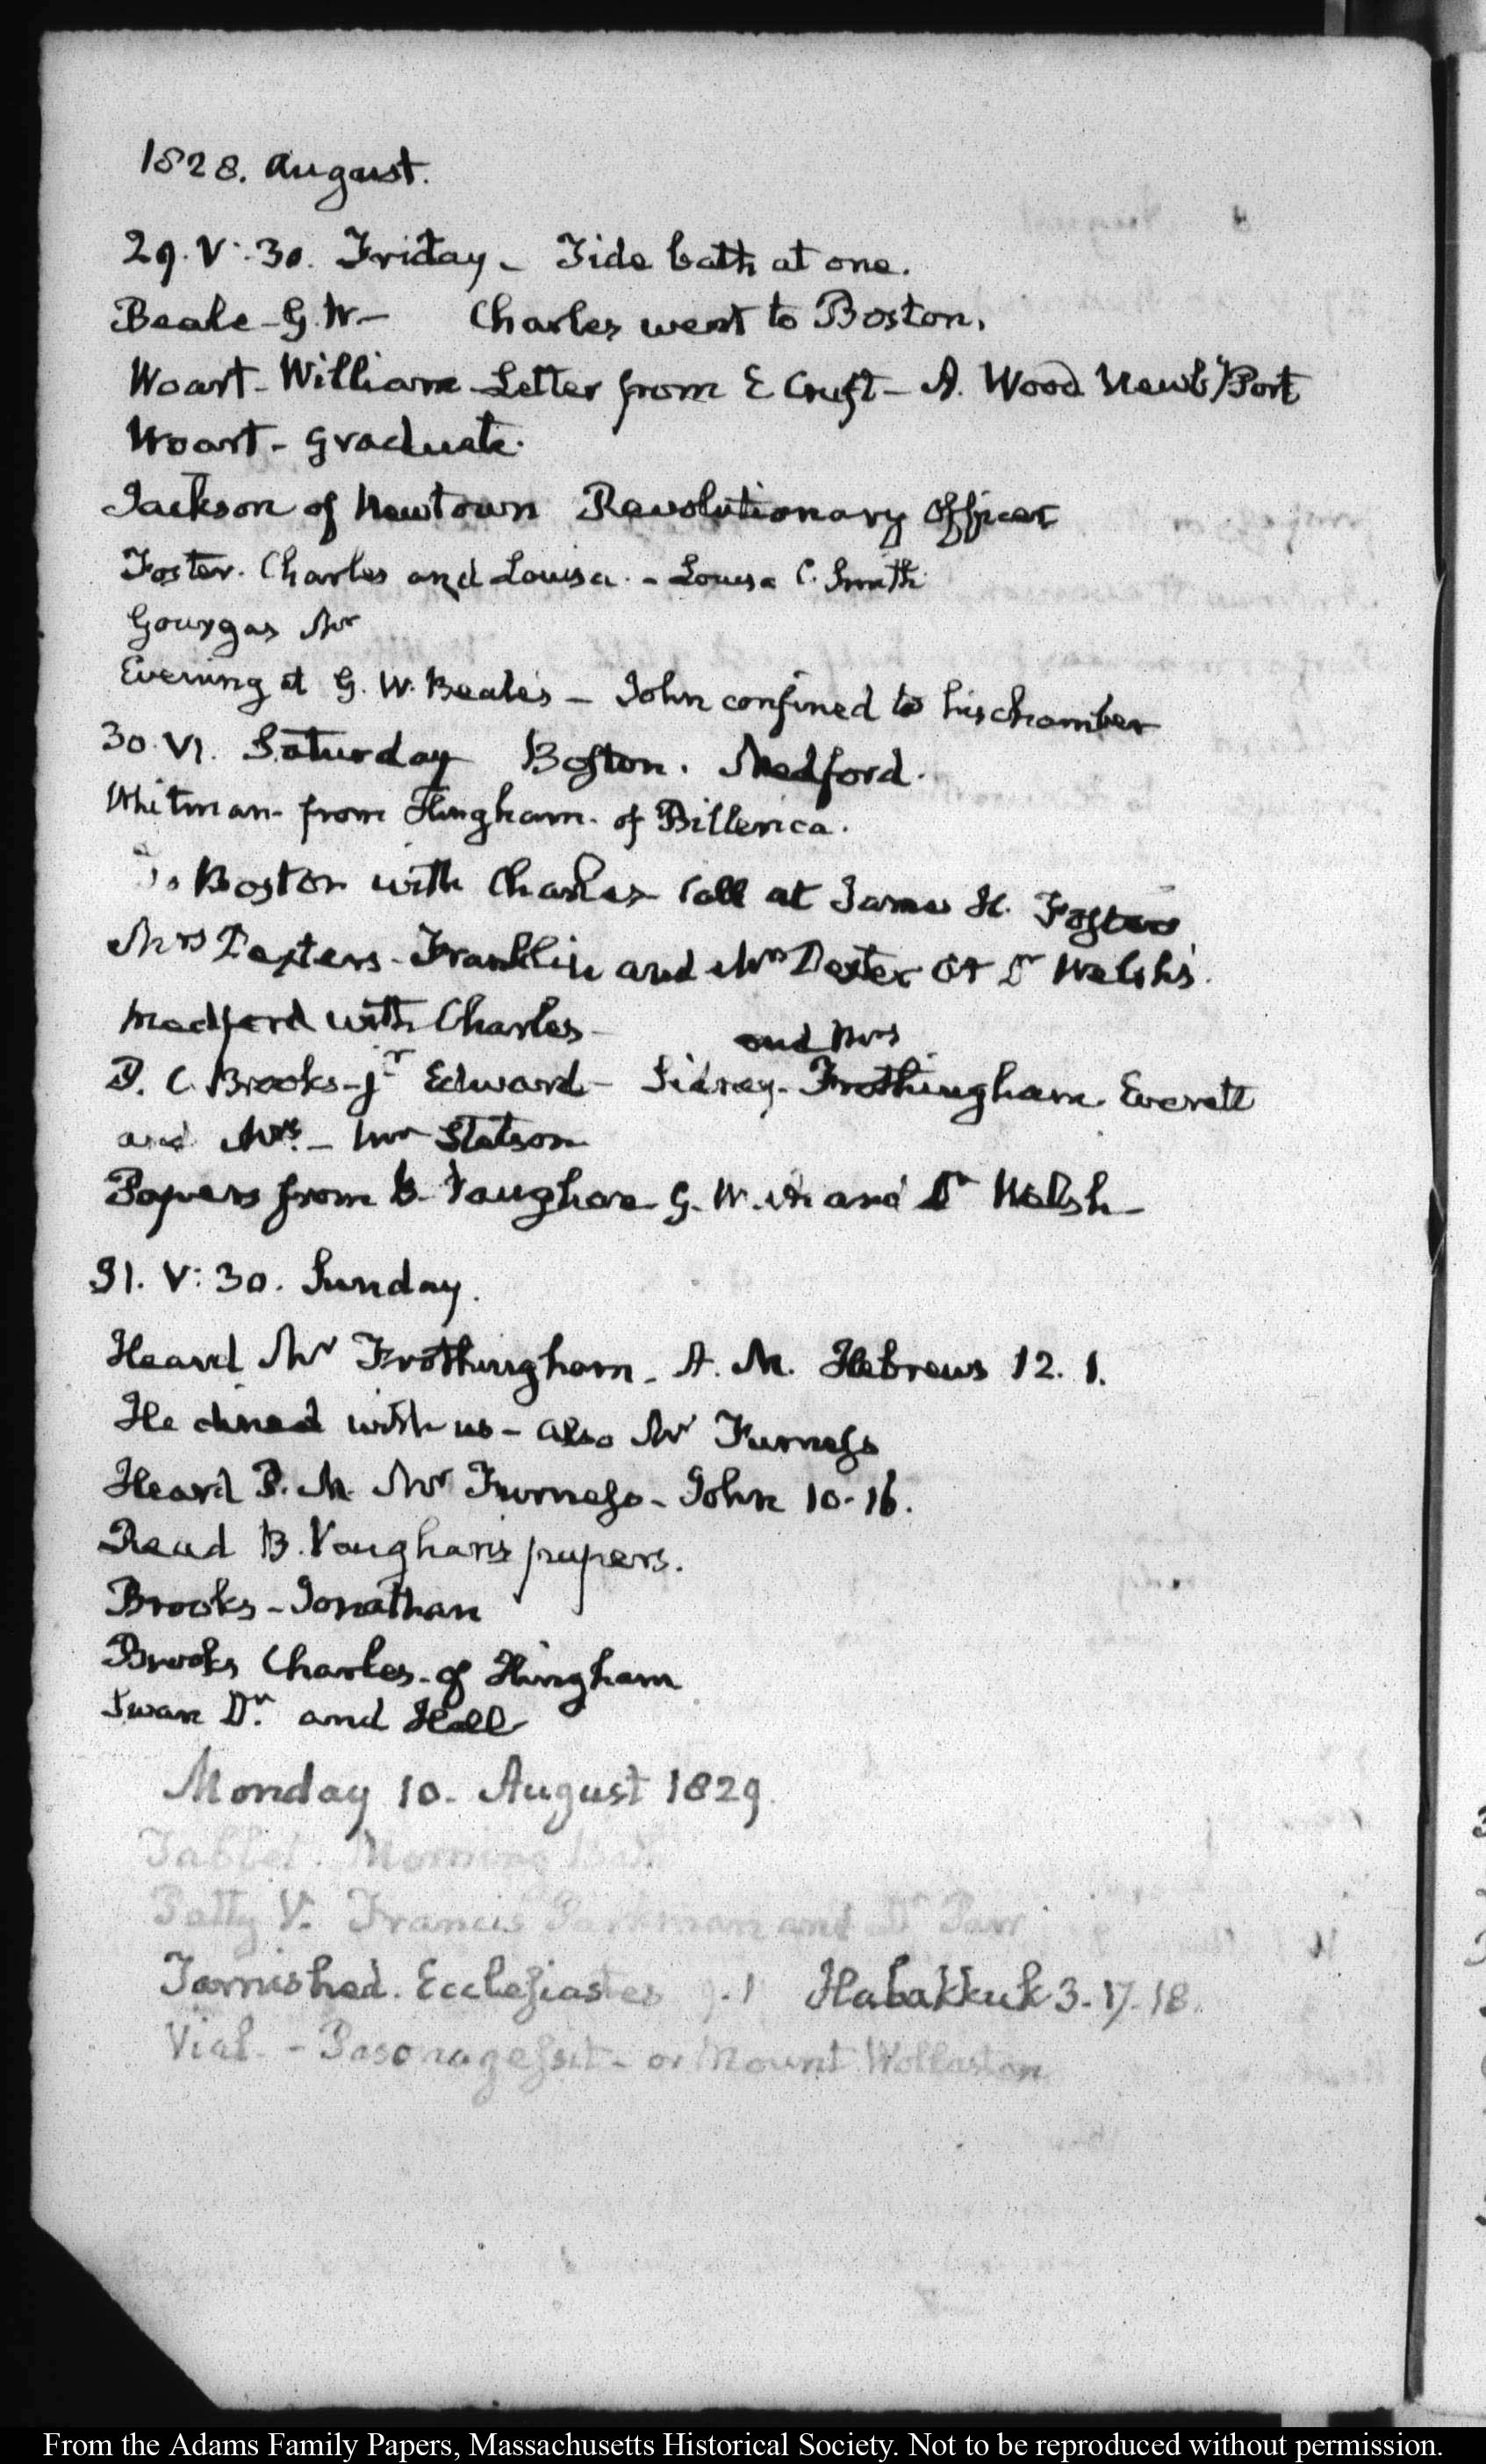 1828. August.
29. V:30. Friday - Tide bath at one.
Beale - G. W - Charles went to Boston.
Woart - William - Letter from E Cruft - A. Wood Newb'Port
Woart - Graduate.
Jackson of Newtown Revolutionary Officer
Foster. Charles and Louisa. - Louisa C. Smith
Gourgas Mr
Evening at G. W. Beale's - John confined to his chamber
30. VI. Saturday Boston. Medford.
Whitman - from Hingham - of Billerica.
To Boston with Charles - Call at James H. Fosters
Mrs Dexters - Franklin and Mrs Dexter at Dr Welsh's.
Medford with Charles -
and Mrs
P. C. Brooks - jr Edward - Sidney - Frothingham - Everett
and Mrs. - Mr Stetson
Papers from B. Vaughan - G. W. A. and Dr Welsh -
31. V:30. Sunday.
Heard Mr Frothingham - A. M. Hebrews 12. 1.
He dined with us - also Mr Furness
Heard P. M. Mr Furness - John 10-16.
Read B. Vaughan's papers.
Brooks - Jonathan
Brooks Charles - of Hingham
Swan Dr. and Hall
Monday 10. August 1829.
Tablet. Morning Bath
Patty V. Francis Parkman and Dr Parr
Tarnished. Ecclesiastes 9.1 Habakkuk 3. 17. 18.
Vial - or Mount Wollaston
From the Adams Family Papers, Massachusetts Historical Society. Not to be reproduced without permission.